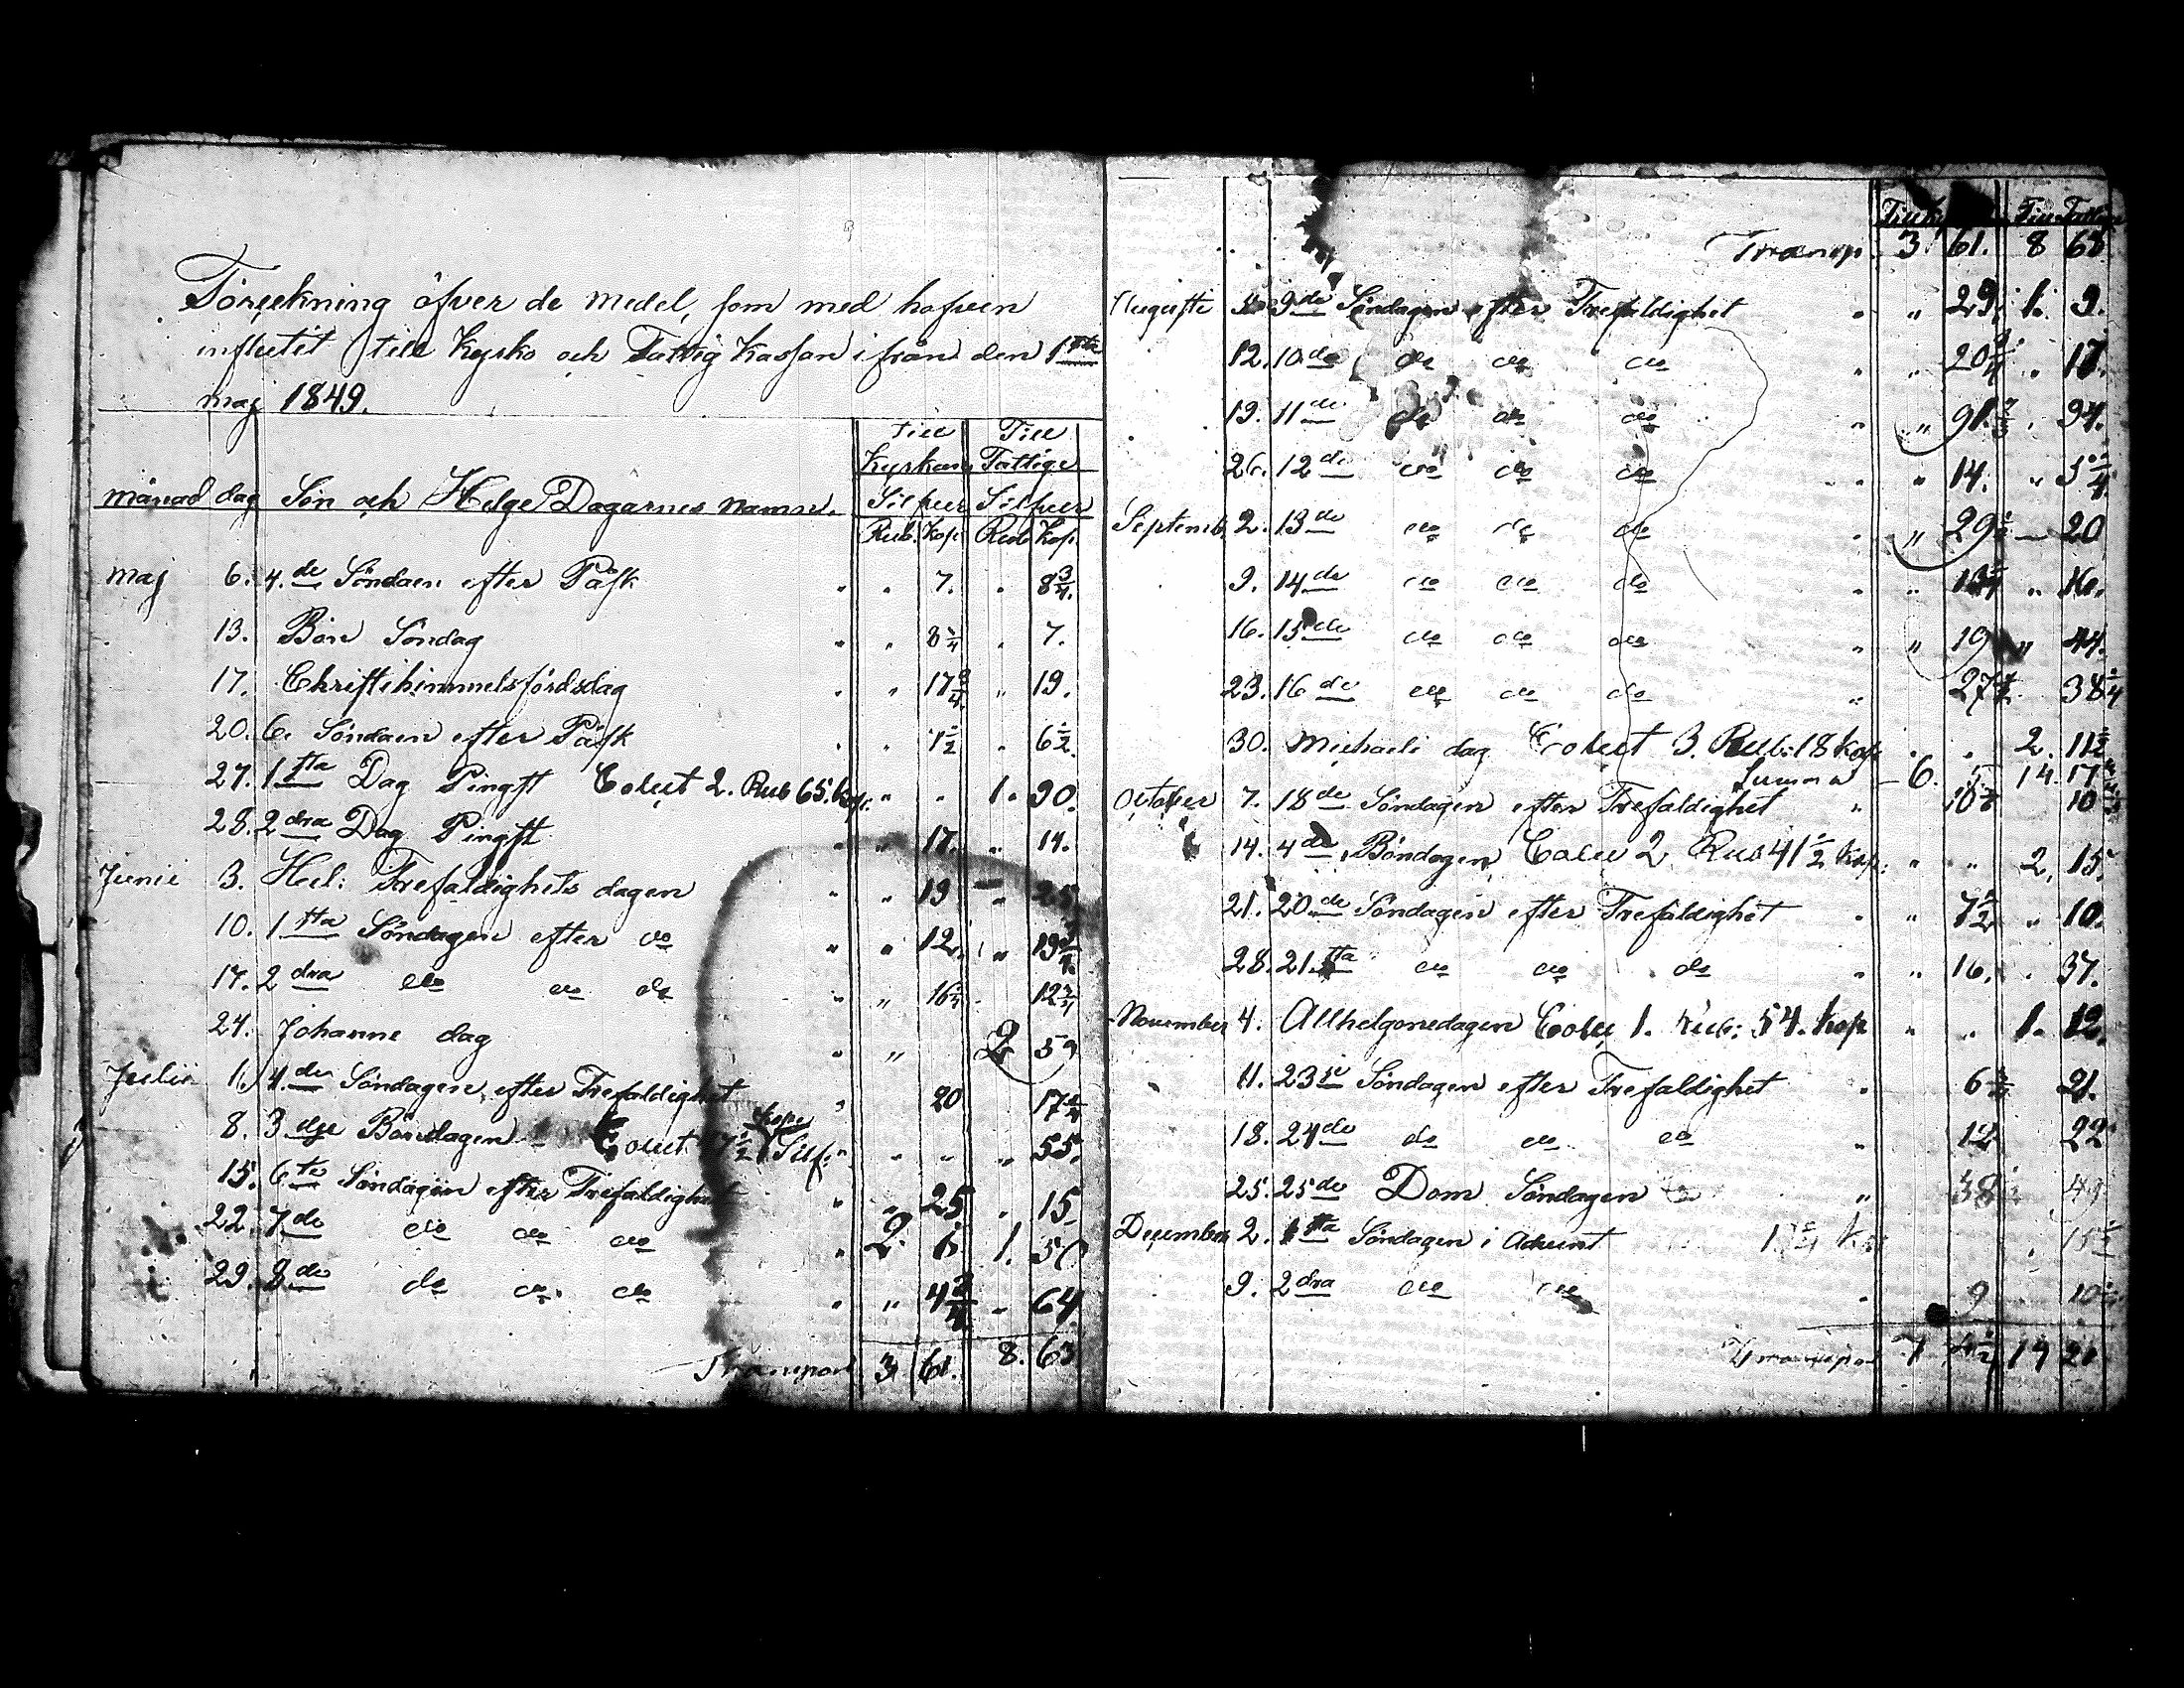 Förtekning öfver de medel, som med hofven
influtit till Kyrko och Fattig Kassan ifrån den 1sta
maj 1849.
Till Till
Kyrkan Fattige
månad dag Sön och Helge Dagarnes namn. Silfver Silfver
Rub. Kop. Rub. Kop.
maj 6. 4.de Söndaen efter Påsk " " 7. " 8 3/4.
13. Bön Söndag " " 8 1/4 " 7.
17. Christihimmelsfärdsdag " " 17 3/4 " 19.
20. 6. Söndaen efter Påsk " " 1/2 " 6 1/2
27. 1sta Dag Pingst Colect 2. Rub 65. kop. " " 1. 90.
28. 2dra Dag Pingst " " 17. " 14.
Junii 3. Hel: Trefaldighets dagen " " 19 " 25
10. 1sta Söndagen efter do " " 12. " 19
17. 2dra do do do " " 16 " 12
24. Johanne dag " " 2 59
Julii 1. 4.de Söndagen efter Trefaldighet " 20 17
8. 3dje Böndagen Colect kop. Silf: " " " " 55.
15. 6te Söndagen efter Trefaldighet " " 25 " 15
22. 7.de do do do " 2. 6 1. 50
29. 8de do do do " " 4 3/4 " 64
Transport 3 61. 8. 63
Till Till Fattige
Transp. 3. 61. 8 63
Augusti 5. 9de Söndagen efter Trefaldighet " " 29. 1. 9.
12. 10.de do do do " " 20 3/4 " 17.
19. 11de do do do " " 91 . 94.
26. 12de do do do " " 14. "
Septemb. 2. 13de do do do " " 29 — 20
9. 14de do do do " " " 16.
16. 15de do do do " " 19 " 44.
23. 16de do do do " 27 38 1/4
30. Michaeli dag Colect 3. Rub: 18 kop " " 2. 11 1/2
Summa 6. 14. 17
October 7. 18de Söndagen efter Trefaldighet " 10 10
14. 4de Böndagen Colec 2 Rub 41 1/2 kop: " " 2. 15.
21. 20.de Söndagen efter Trefaldighet " " 7 1/2 " 10.
28. 21sta do do do " " 16. . 37.
November 4. Allhelgonedagen Colec 1. Rub: 54. kop " " 1. 12.
11. 23de Söndagen efter Trefaldighet " 6 21.
18. 24de do do do " 12 22
25. 25de Dom Söndagen " 38
December 2. 1sta Söndagen i Advent " 15
9. 2dra do do " 9 10
Transport 7 19 21